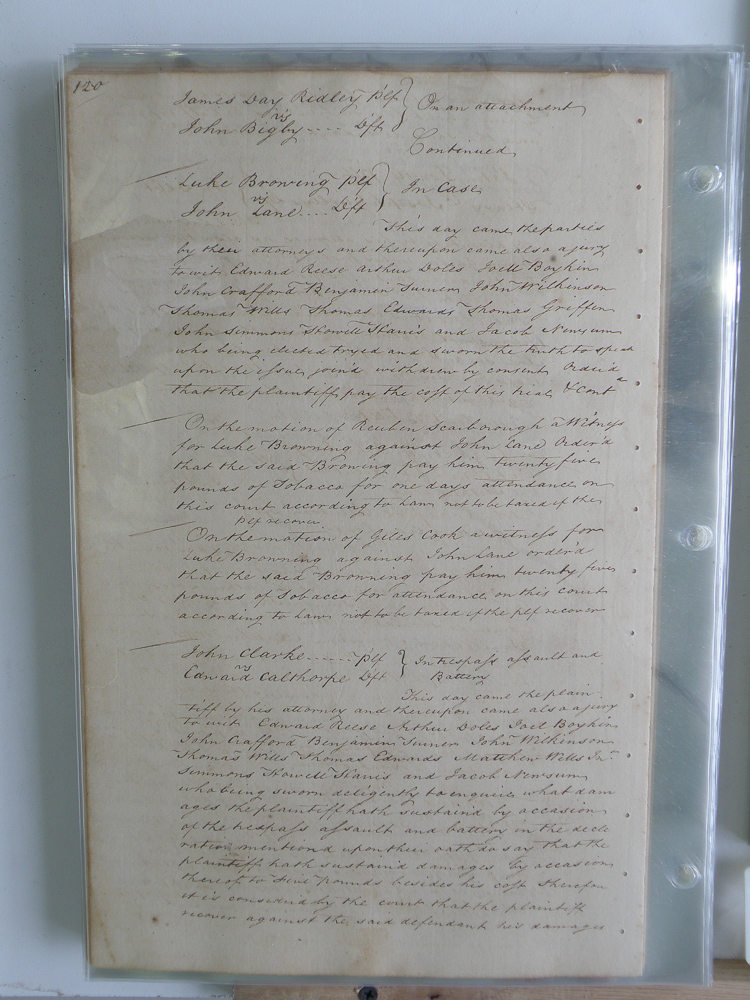 120
James Day Ridley Plf } On an attachment
vs
John Bigby .... Dft
Continued
Luke Browning Plf } In Case
vs
John Lane .... Dft
This day came the parties
by their attorneys and thereupon came also a jury
to wit Edward Reese Arthur Doles Joell Boykin
John Crafford Benjamin Turner John Wilkinson
Thomas Wills Thomas Edwards Thomas Griffin
John Simmons Howell Harris and Jacob Newsum
who being elected tryed and sworn the truth to speak
upon the issue join'd withdrew by consent Order'd
that the plaintiff pay the cost of this trial & Contd
On the motion of Reuben Scarborough a Witness
for Luke Browning against John Lane Order'd
that the said Browing pay him twenty five
pounds of Tobacco for one days attendance on
this court according to Law not to be taxed if the
Plf recover
On the motion of Giles Cook a witness for
Luke Browning against John Lane order'd
that the said Browning pay him twenty five
pounds of Tobacco for attendance on this court
according to Law not to be taxed if the plf recover
John Clarke ...... Plf } In trespass assault and
vs Battery
Edward Calthorpe Dft
This day came the plain
tiff by his attorney and thereupon came also a jury
to wit Edward Reese Arthur Doles Joel Boykin
John Crafford Benjamin Turner John Wilkinson
Thomas Wills Thomas Edwards Matthew Wells Jno
Simmons Howell Harris and Jacob Newsum
who being sworn deligently to enquire what dam
ages the plaintiff hath sustaind by occasion
of the trespass assault and battery in the decla
ration mentiond upon their oath do say that the
plaintiff hath sustain'd damages by occasion
thereof to five pounds besides his cost therefore
it is considerd by the court that the plaintiff
recover against the said defendant his damages